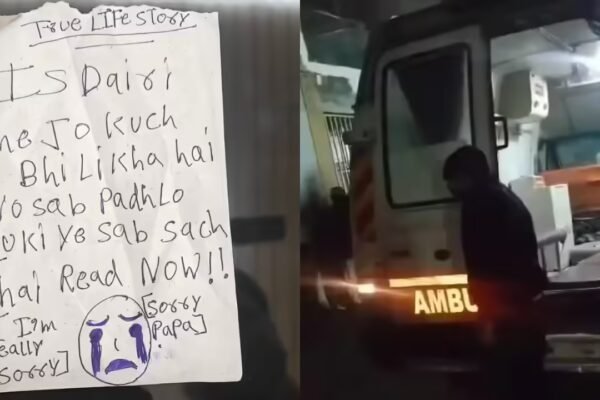 TRUE LIFE STORY
IS Dairi
me Jo kuch
Bhi Likha hai
vo sab Padhlo
uki ye sab sach
hai Read NOW!!
[I'm
eally
sorry]
[sorry
Papa]
AMBU